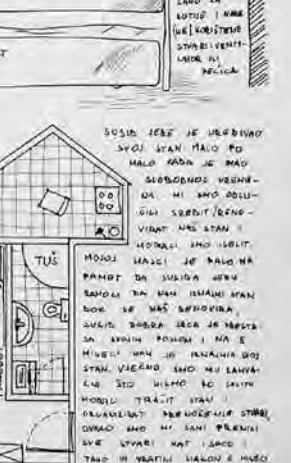 LAĐO ZA
KOTUE I NAŠE
KORIŠTENE
STVARI: VENTI-
LATOR ILI
PEĆICA
T
SUSID JERE JE UREĐIVAO
SVOJ STAN MALO PO
MALO KADA JE IMAO
SLOBODNOG VREME-
NA. MI SMO ODLU-
ČILI SREDIT/RENO-
VIRAT NAŠ STAN I
MORALI SMO ISELIT.
MOJOJ MAJCI JE PALO NA
PAMET DA SUSIDA JERU
ZAMOLI DA NAM IZNAJMI STAN
DOK SE NAŠ RENOVIRA.
SUSID DOBRA SRCA JE PRISTA
SA SVOJIM POSLOM I NA 6
MISECI NAM JE IZNAJMIA SVOJ
STAN. VJEČNO SMO MU ZAHVA-
LNI ŠTO NISMO PO SPLITU
MORALI TRAŽIT STAN I
ORGANIZIRAT PRENOŠENJE STVARI,
OVAKO SMO MI SAMI PRENILI
SVE STVARI KAT ISPOD I
TAKO IH VRATILI NAKON 6 MISECI
TUŠ